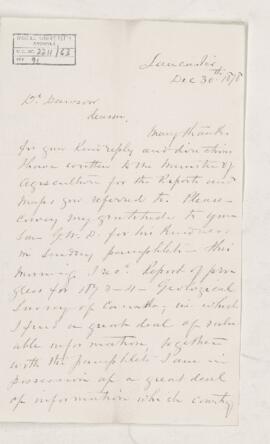 McGILL UNIVERSITY
ARCHIVES
2211/63
Lancaster
Dec 30th 1878
Dr Dawson
Many thanks
for your kind reply and directions
I have written to the Minister of
Agriculture for the Reports and
maps you referred to. Please
convey my gratitude to your
Son G.M.D. for his kindness
in sending pamphlets. This
morning I recd Report of pro-
gress for 1873-4. Geological
Survey of Canada, in which
I find a great deal of valu
able information, together
with the pamphlets I am in
possession of a great deal
of information which